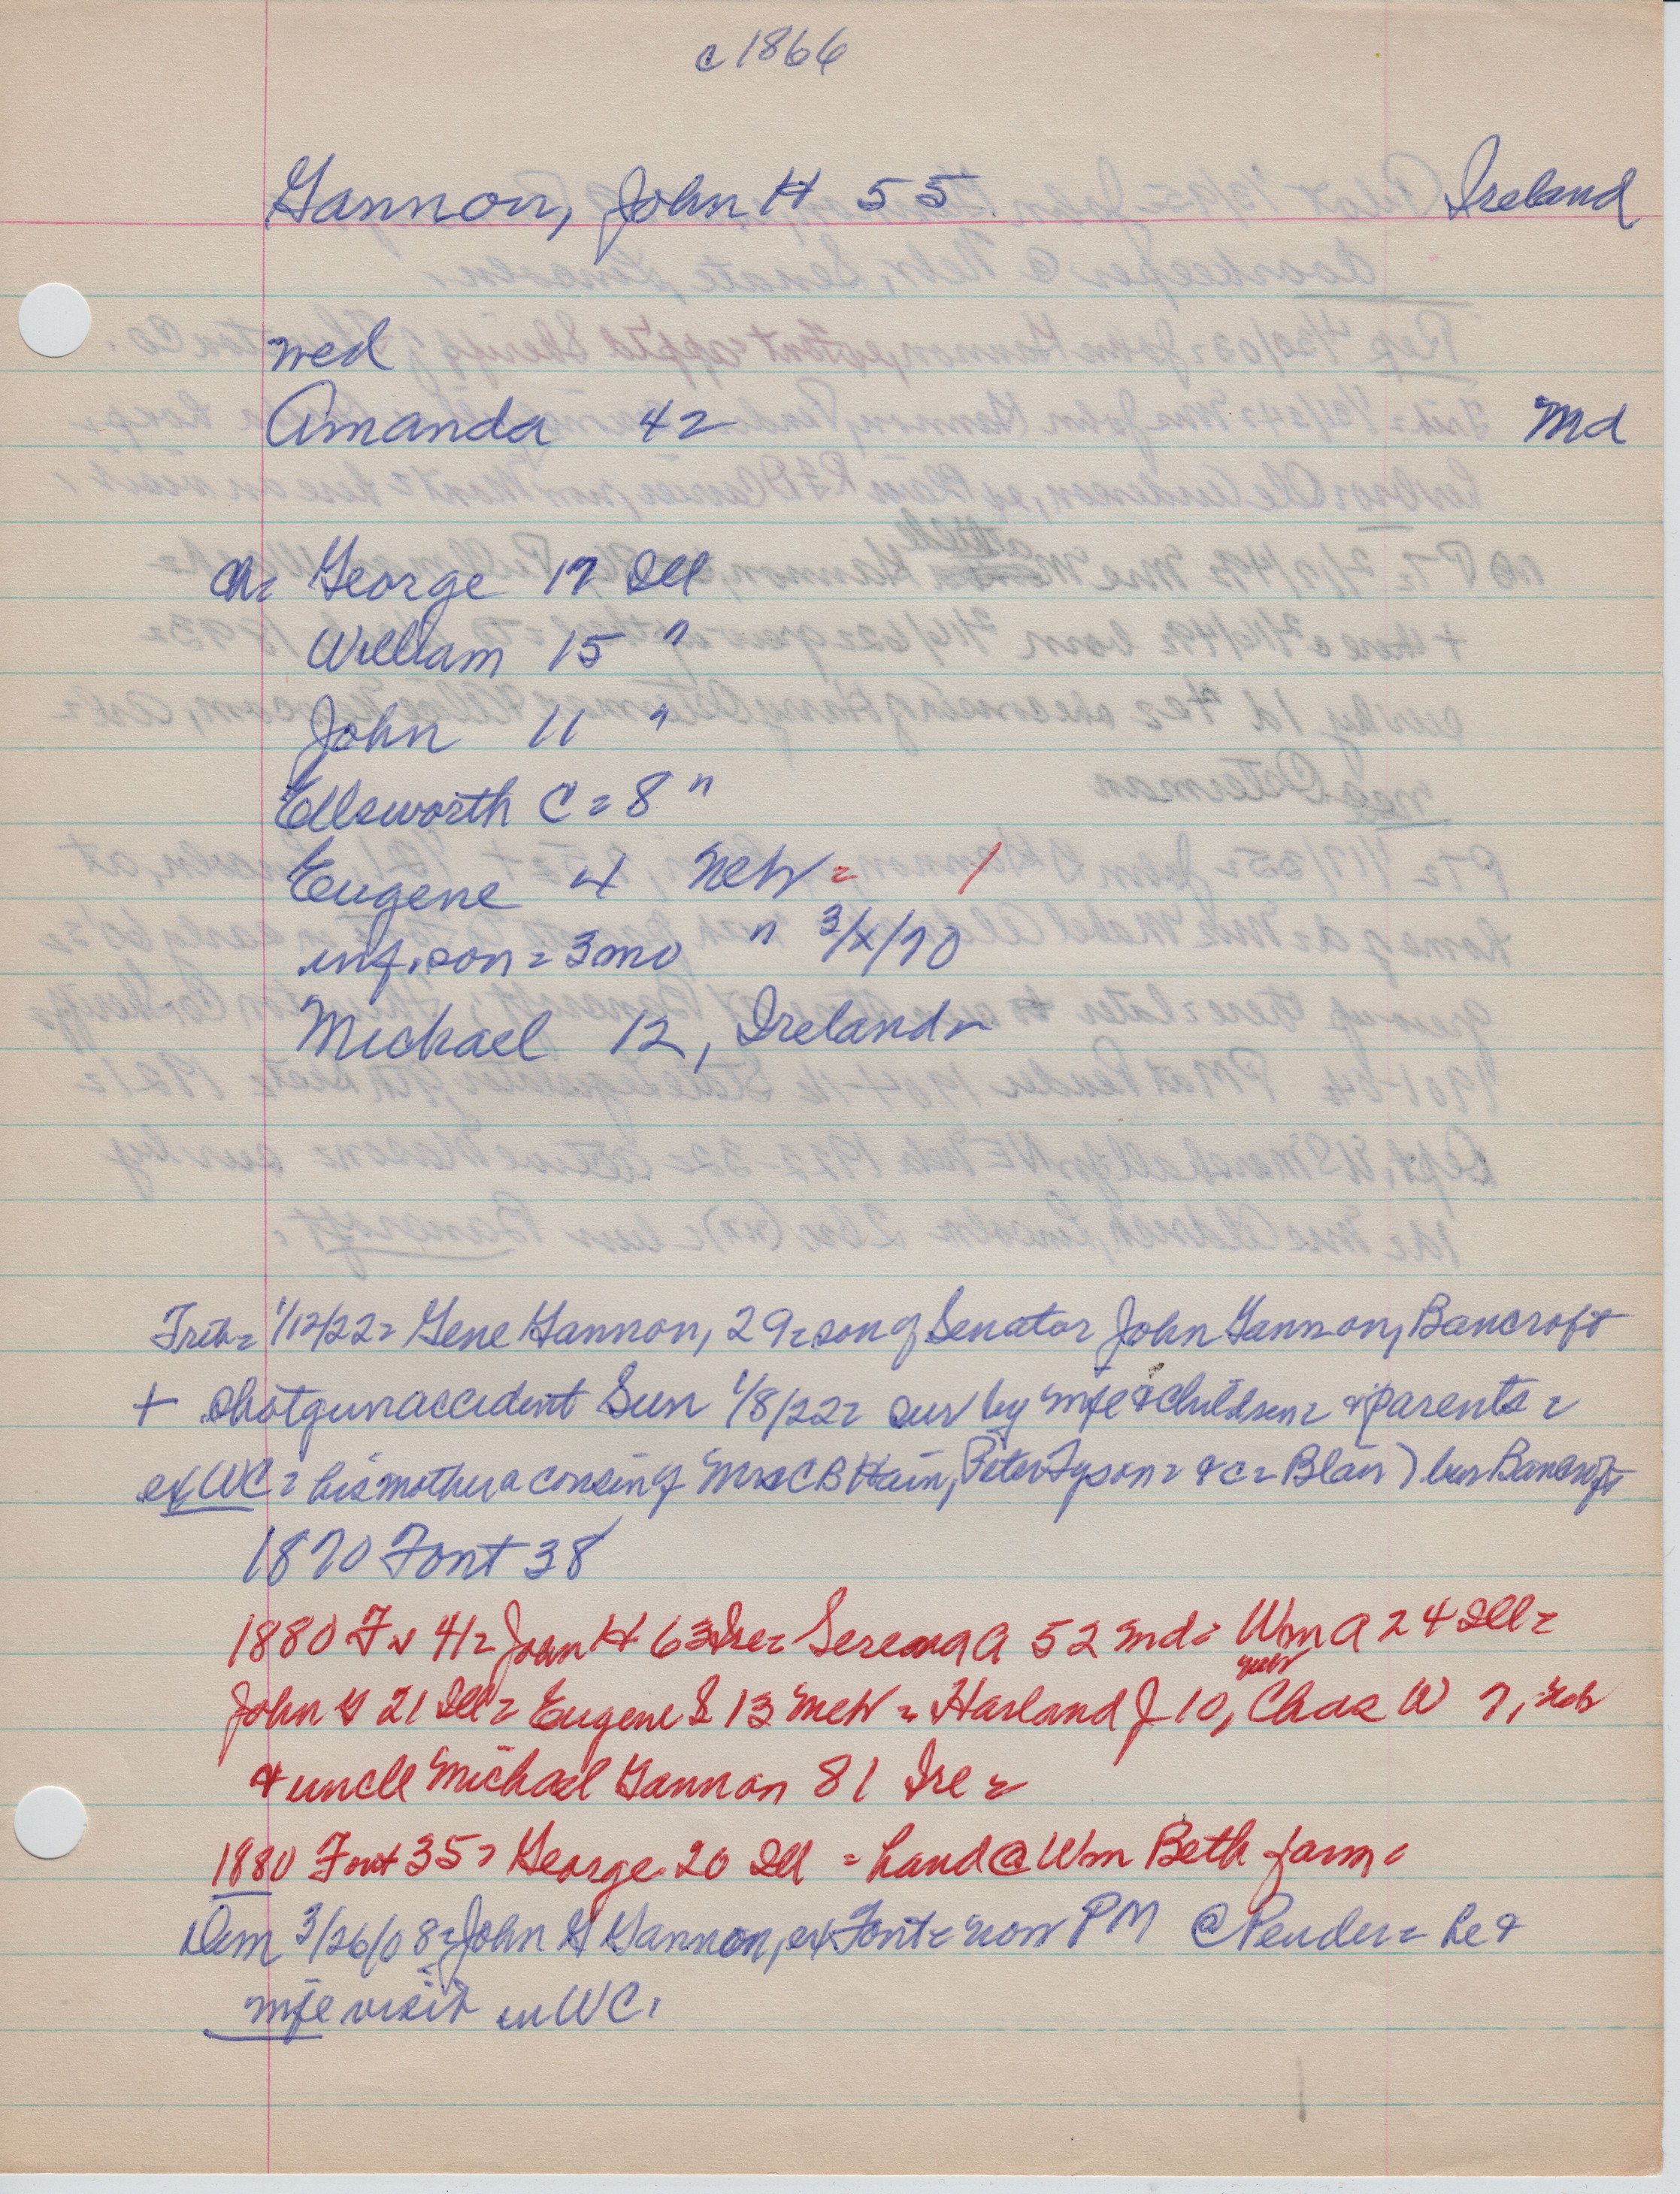 c 1866
Gannon, John H 55 Ireland
wed
Amanda 42 Md
ch= George 17 Ill
William 15 "
John 11 "
Ellsworth C = 8 "
Eugene 4 Neb = 1
inf. son = 3 mo " 3/x/70
Michael 12, Ireland =
Trib = 1/12/22 = Gene Gannon, 29 = son of Senator John Gannon, Bancroft
+ shotgun accident Sun 1/8/22 = sur by wife & children = & parents =
ex WC = his mother a cousin of Mrs C B Hain, Peter Tyson = & c = Blair) bur Bancroft
1870 Font 38
1880 Fv 41 = John H 63 Ire = Serena A 52 Md = Wm A 24 Ill =
John G 21 Ill = Eugene S 13 Neb = Harland J 10, Neb Chas W 7, Neb
& uncle Michael Gannon 81 Ire =
1880 Font 35 = George 20 Ill = hand @ Wm Beth farm =
Dem 3/26/08 = John G Gannon, ex Font = now PM @ Pender = he &
wife visit in WC.